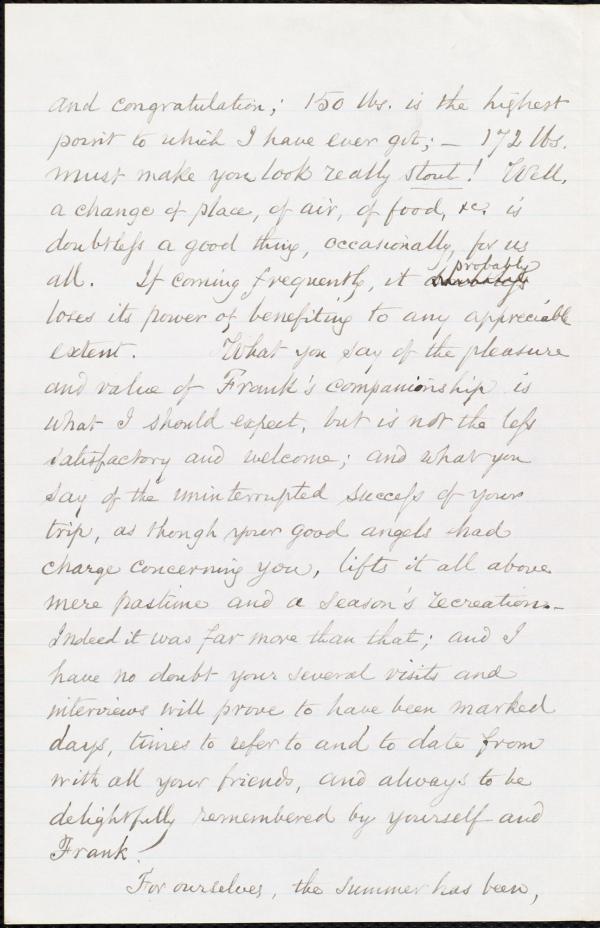 and congratulation; 150 lbs. is the highest
point to which I have ever got; – 172 lbs.
must make you look really stout! Well,
a change of place, of air, of food, &c. is
doubtless a good thing, occasionally, for us
all. If coming frequently, it probably
loses its power of benefiting to any appreciable
extent. What you say of the pleasure
and value of Frank's companionship is
what I should expect, but is not the less
satisfactory and welcome; and what you
say of the uninterrupted success of your
trip, as though your good angels had
charge concerning you, lifts it all above
mere pastime and a season's recreation.–
Indeed it was far more than that; and I
have no doubt your several visits and
interviews will prove to have been marked
days, times to refer to and to date from
with all your friends, and always to be
delightfully remembered by yourself and
Frank!
For ourselves, the summer has been,